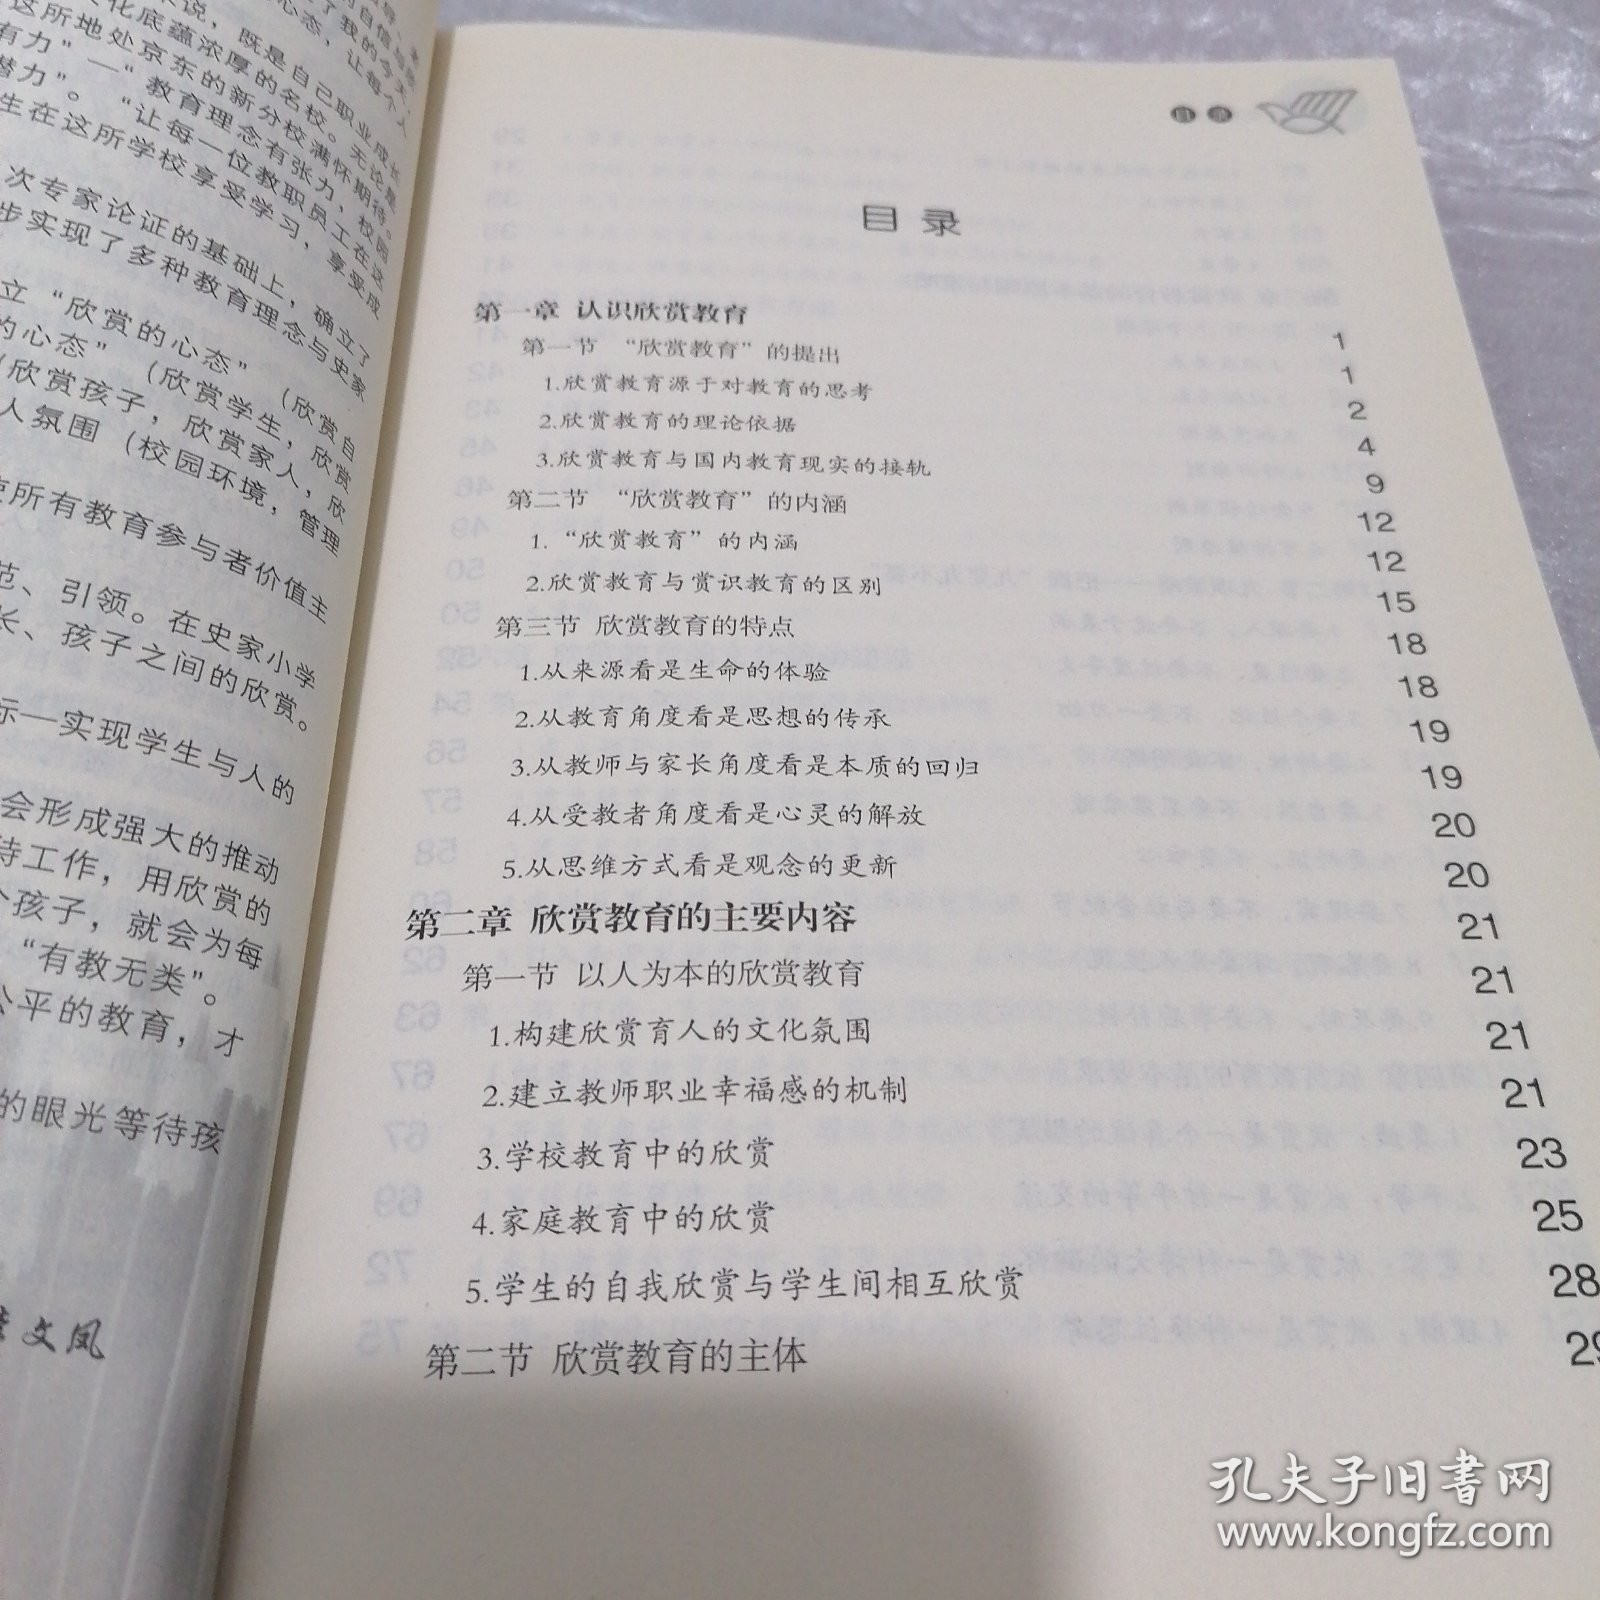 化底蕴浓厚的名校。无论是
这所地处京东的新分校满怀期待。
有力”—“教育理念有张力，校园
潜力”。“让每一位教职员工在这
生在这所学校享受学习，享受成
次专家论证的基础上，确立了
步实现了多种教育理念与史家
立“欣赏的心态”（欣赏自
的心态”（欣赏学生，欣赏
（欣赏孩子，欣赏家人，欣
人氛围（校园环境，管理
所有教育参与者价值主
范、引领。在史家小学
长、孩子之间的欣赏。
标—实现学生与人的
会形成强大的推动
待工作，用欣赏的
个孩子，就会为每
“有教无类”。
公平的教育，才
的眼光等待孩
文凤
目录
目录
第一章 认识欣赏教育 1
第一节 “欣赏教育”的提出 1
1.欣赏教育源于对教育的思考 2
2.欣赏教育的理论依据 4
3.欣赏教育与国内教育现实的接轨 9
第二节 “欣赏教育”的内涵 12
1.“欣赏教育”的内涵 12
2.欣赏教育与赏识教育的区别 15
第三节 欣赏教育的特点 18
1.从来源看是生命的体验 18
2.从教育角度看是思想的传承 19
3.从教师与家长角度看是本质的回归 19
4.从受教者角度看是心灵的解放 20
5.从思维方式看是观念的更新 20
第二章 欣赏教育的主要内容 21
第一节 以人为本的欣赏教育 21
1.构建欣赏育人的文化氛围 21
2.建立教师职业幸福感的机制 21
3.学校教育中的欣赏 23
4.家庭教育中的欣赏 25
5.学生的自我欣赏与学生间相互欣赏 28
第二节 欣赏教育的主体 29
孔夫子旧书网
www.kongfz.com